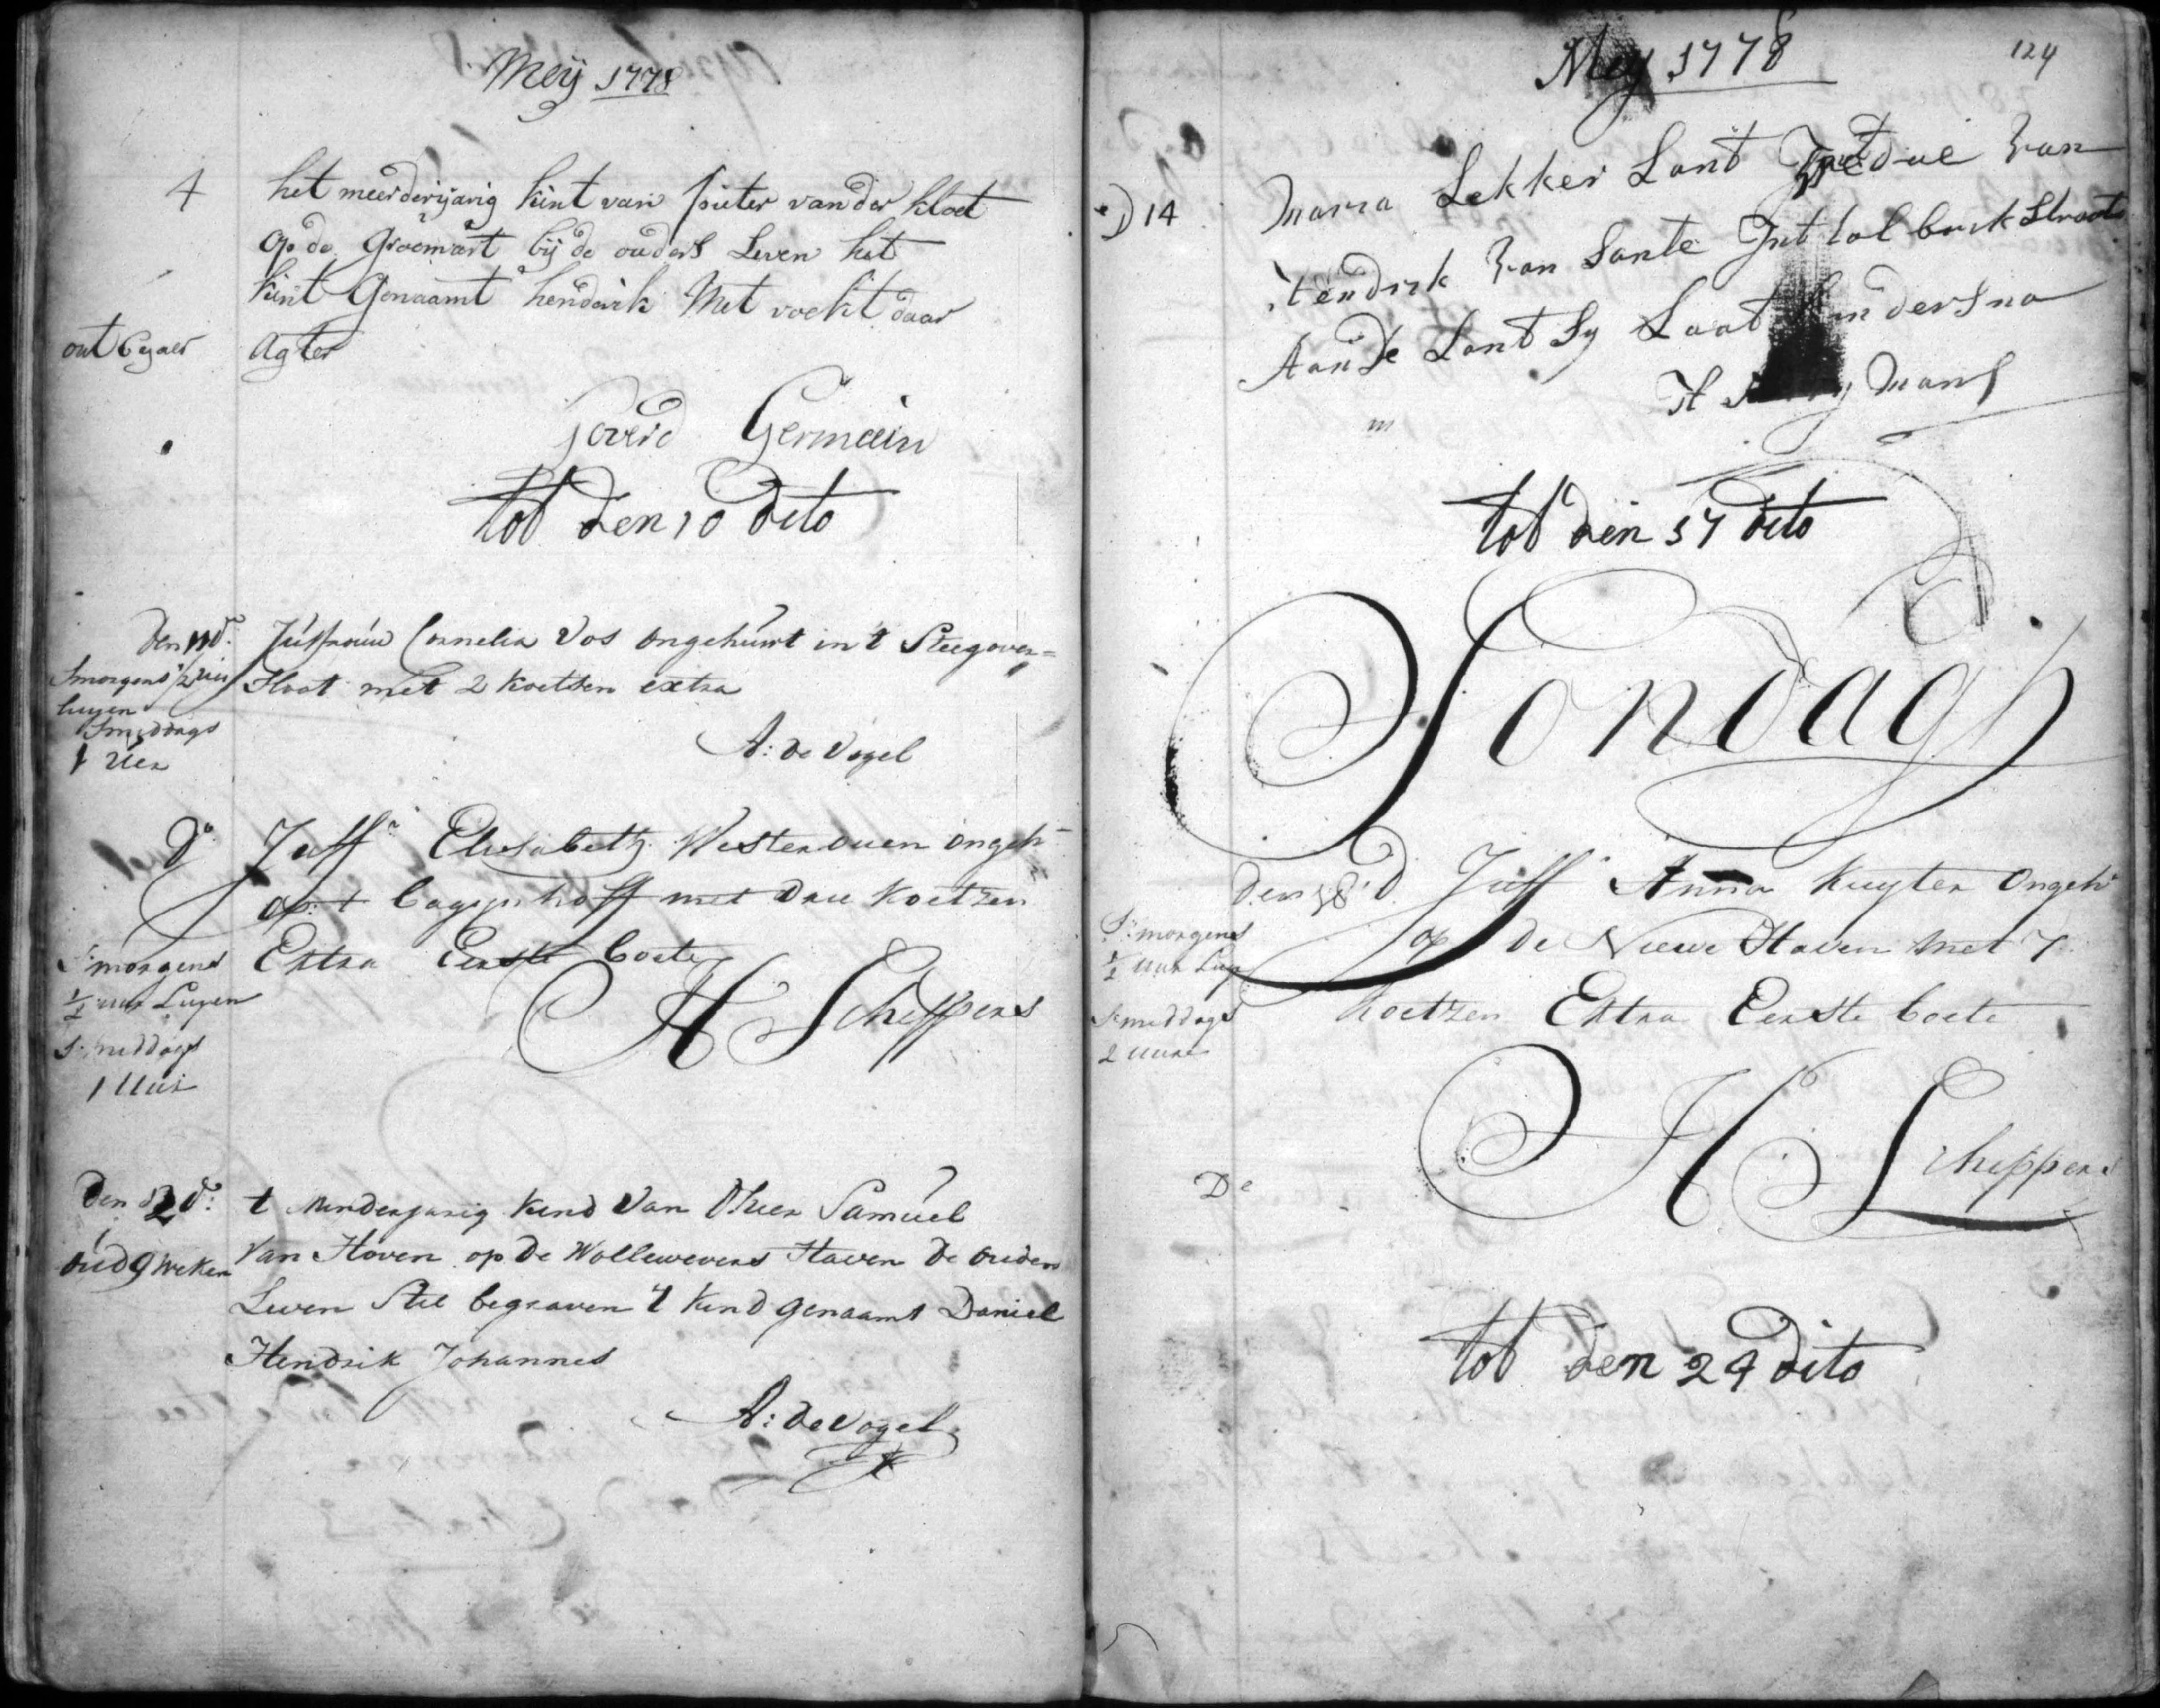 Meÿ 1778
4 het meerderijarig kint van pieter van der kloet
op de Groenmart bij de ouders Leven het
kint Genaamt hendrik Met rockt daar
out 6 jaer agter
Goverd Germain
tot den 10 dito
den 11 d.o Juffrouw Cornelia Vos ongehuwt in 't Steegover=
Smorgens ½ uur sloot met 2 koetsen extra
luyen
Smiddags
1 Uer
A: de Vogel
D.o Juff.r Elisabeth Westerouen ongeh.
op t bagynhoff met drie Koetzen
S:morgens Extra Eerste boete
½ uur Luyen
H Scheppers
S:middags
1 Uur
den 12 d.o t Minderjarig Kind Van d'heer Samuel
oud 9 weken Van Hoven op de Wollewevers Haven de ouders
Leven Stil begraven 't Kind genaamt Daniel
Hendrik Johannes
A: de Vogel
Mey 1778
124
D 14 maria Lekker Lant Wedue van
Hendrik van Sante Int tolbrukstraat
Aan de Lant Sy Laat Kinders na
H mans
tot den 17 dito
Sondag
Den 18 d Juff.r Anna Kuyter Ongeh.
S:morgens op de Niewe Haven met 7
½ uur Luy
koetzen Extra Eerste boete
S:middags
2 uure
H Scheppers
De
tot den 24 dito